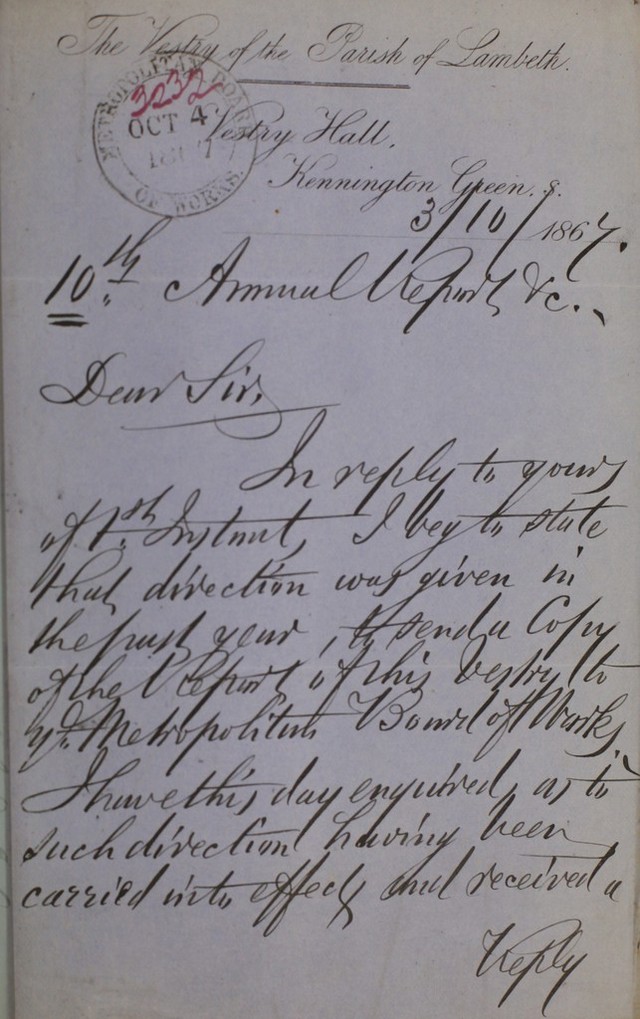 The Vestry of the Parish of Lambeth.
METROPOLITAN BOARD
3232
OCT 4
1867
OF WORKS.
Vestry Hall,
Kennington Green. S.
3/10/1867.
10th Annual Report &c.
Dear Sir,
In reply to yours
of 1st Instant, I beg to state
that direction was given in
the past year, to send a Copy
of the Report of this Vestry to
ye Metropolitan Board of Works.
I have this day enquired, as to
such direction having been
carried into effect, and received a
Reply